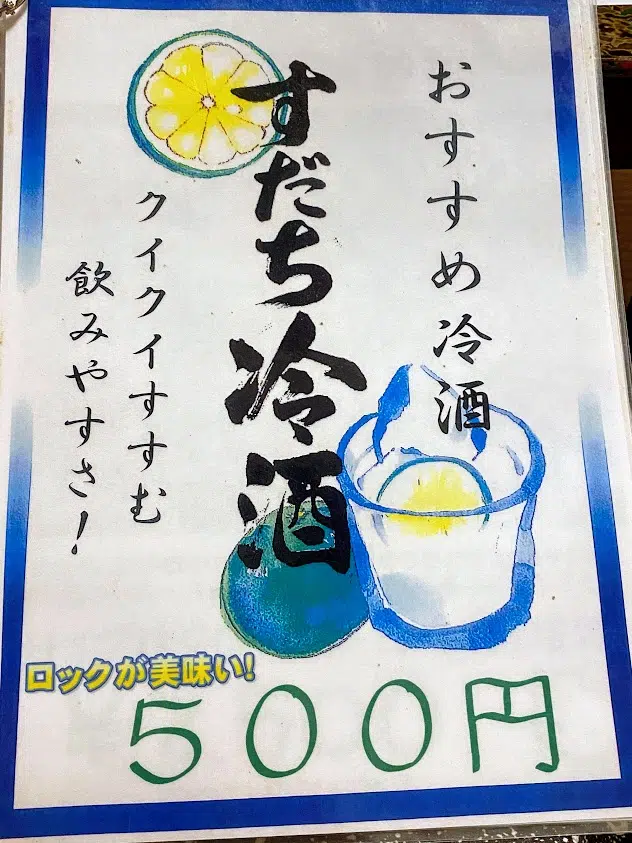 おすすめ冷酒
すだち冷酒
クイクイすすむ
飲みやすさ!
ロックが美味い!
500円